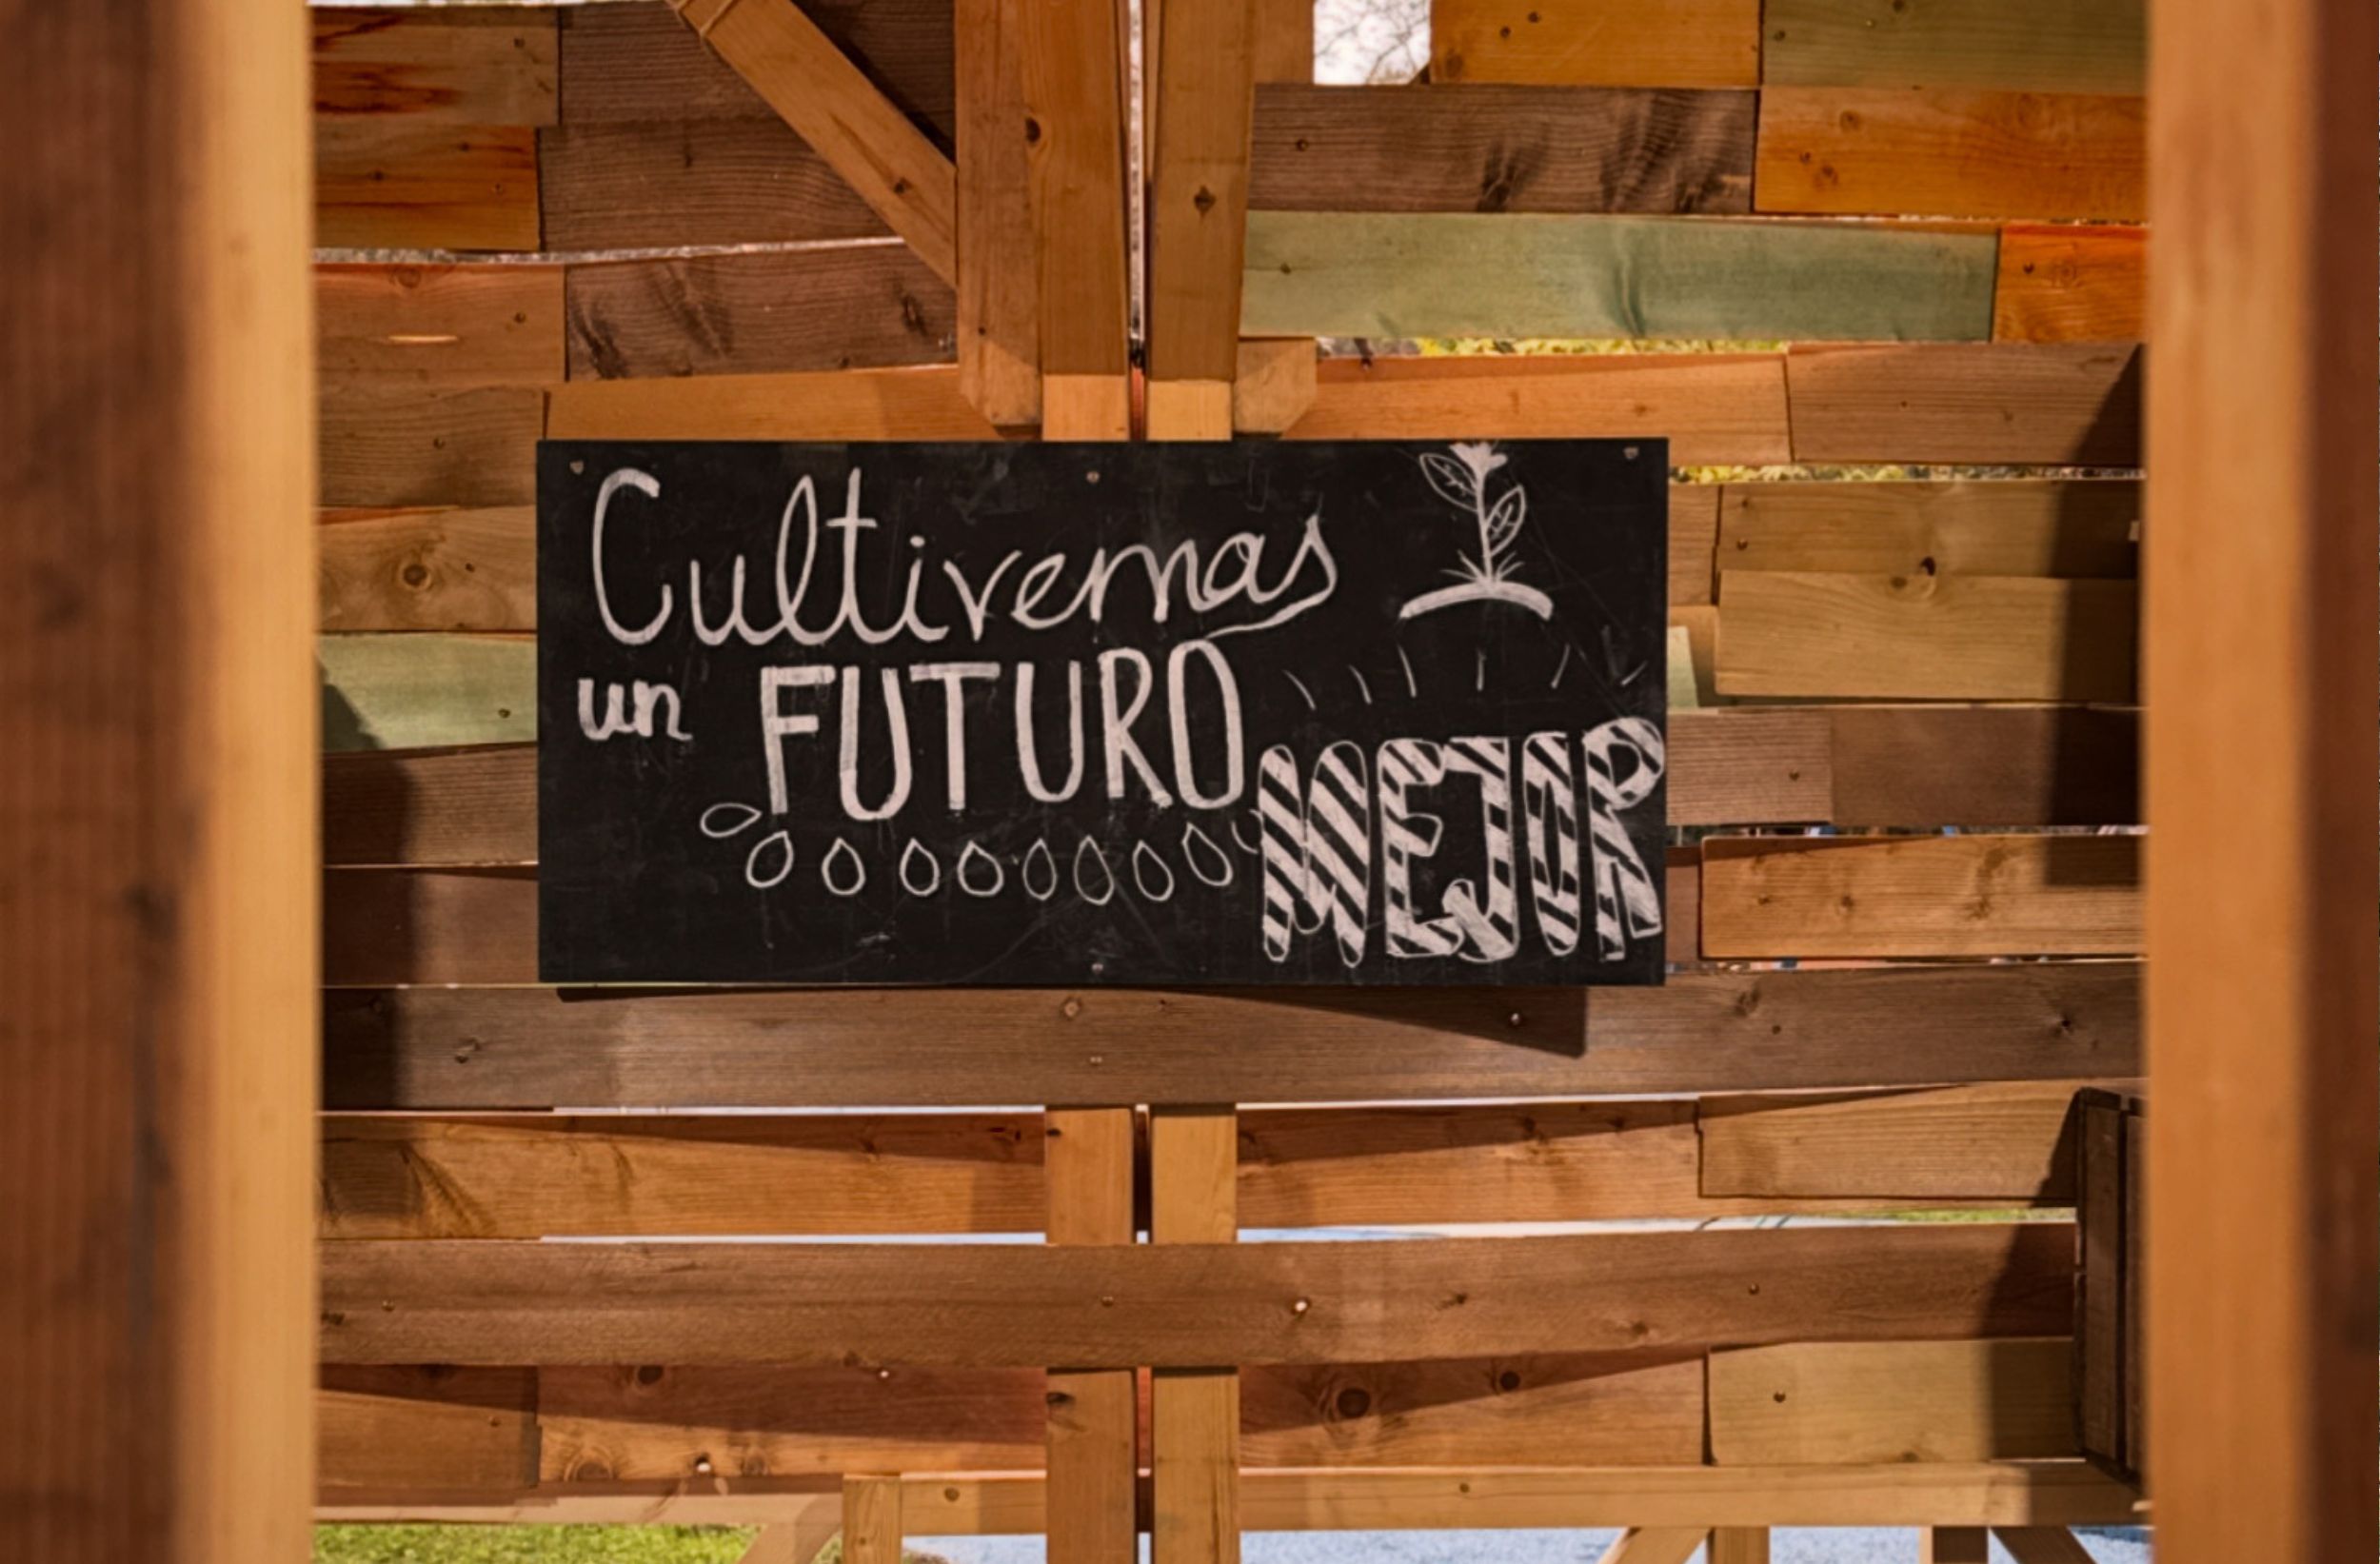 Cultivemas
un FUTURO
MEJOR